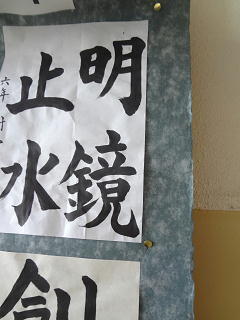 明鏡
止水
六年
創